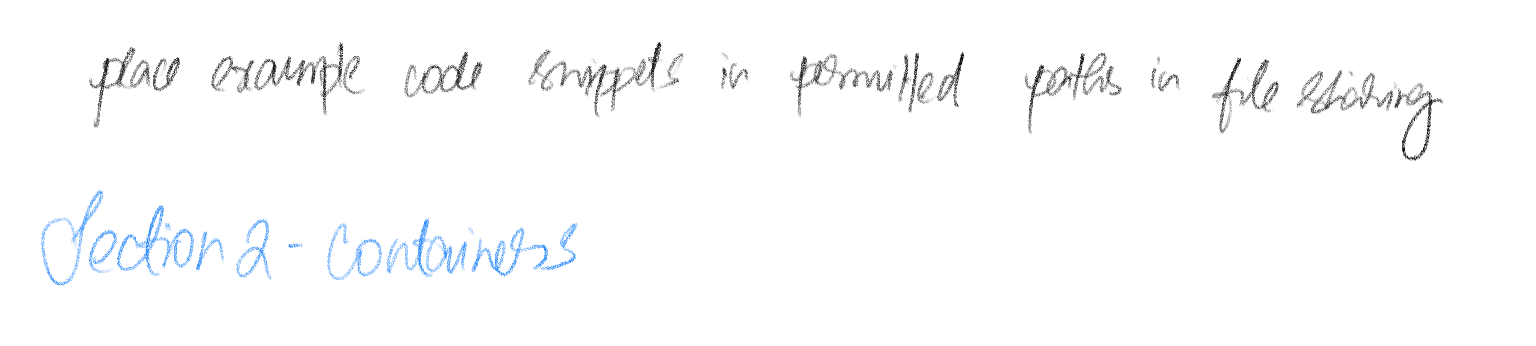 place example code snippets in permitted paths in file sharing
Section 2 - Containers